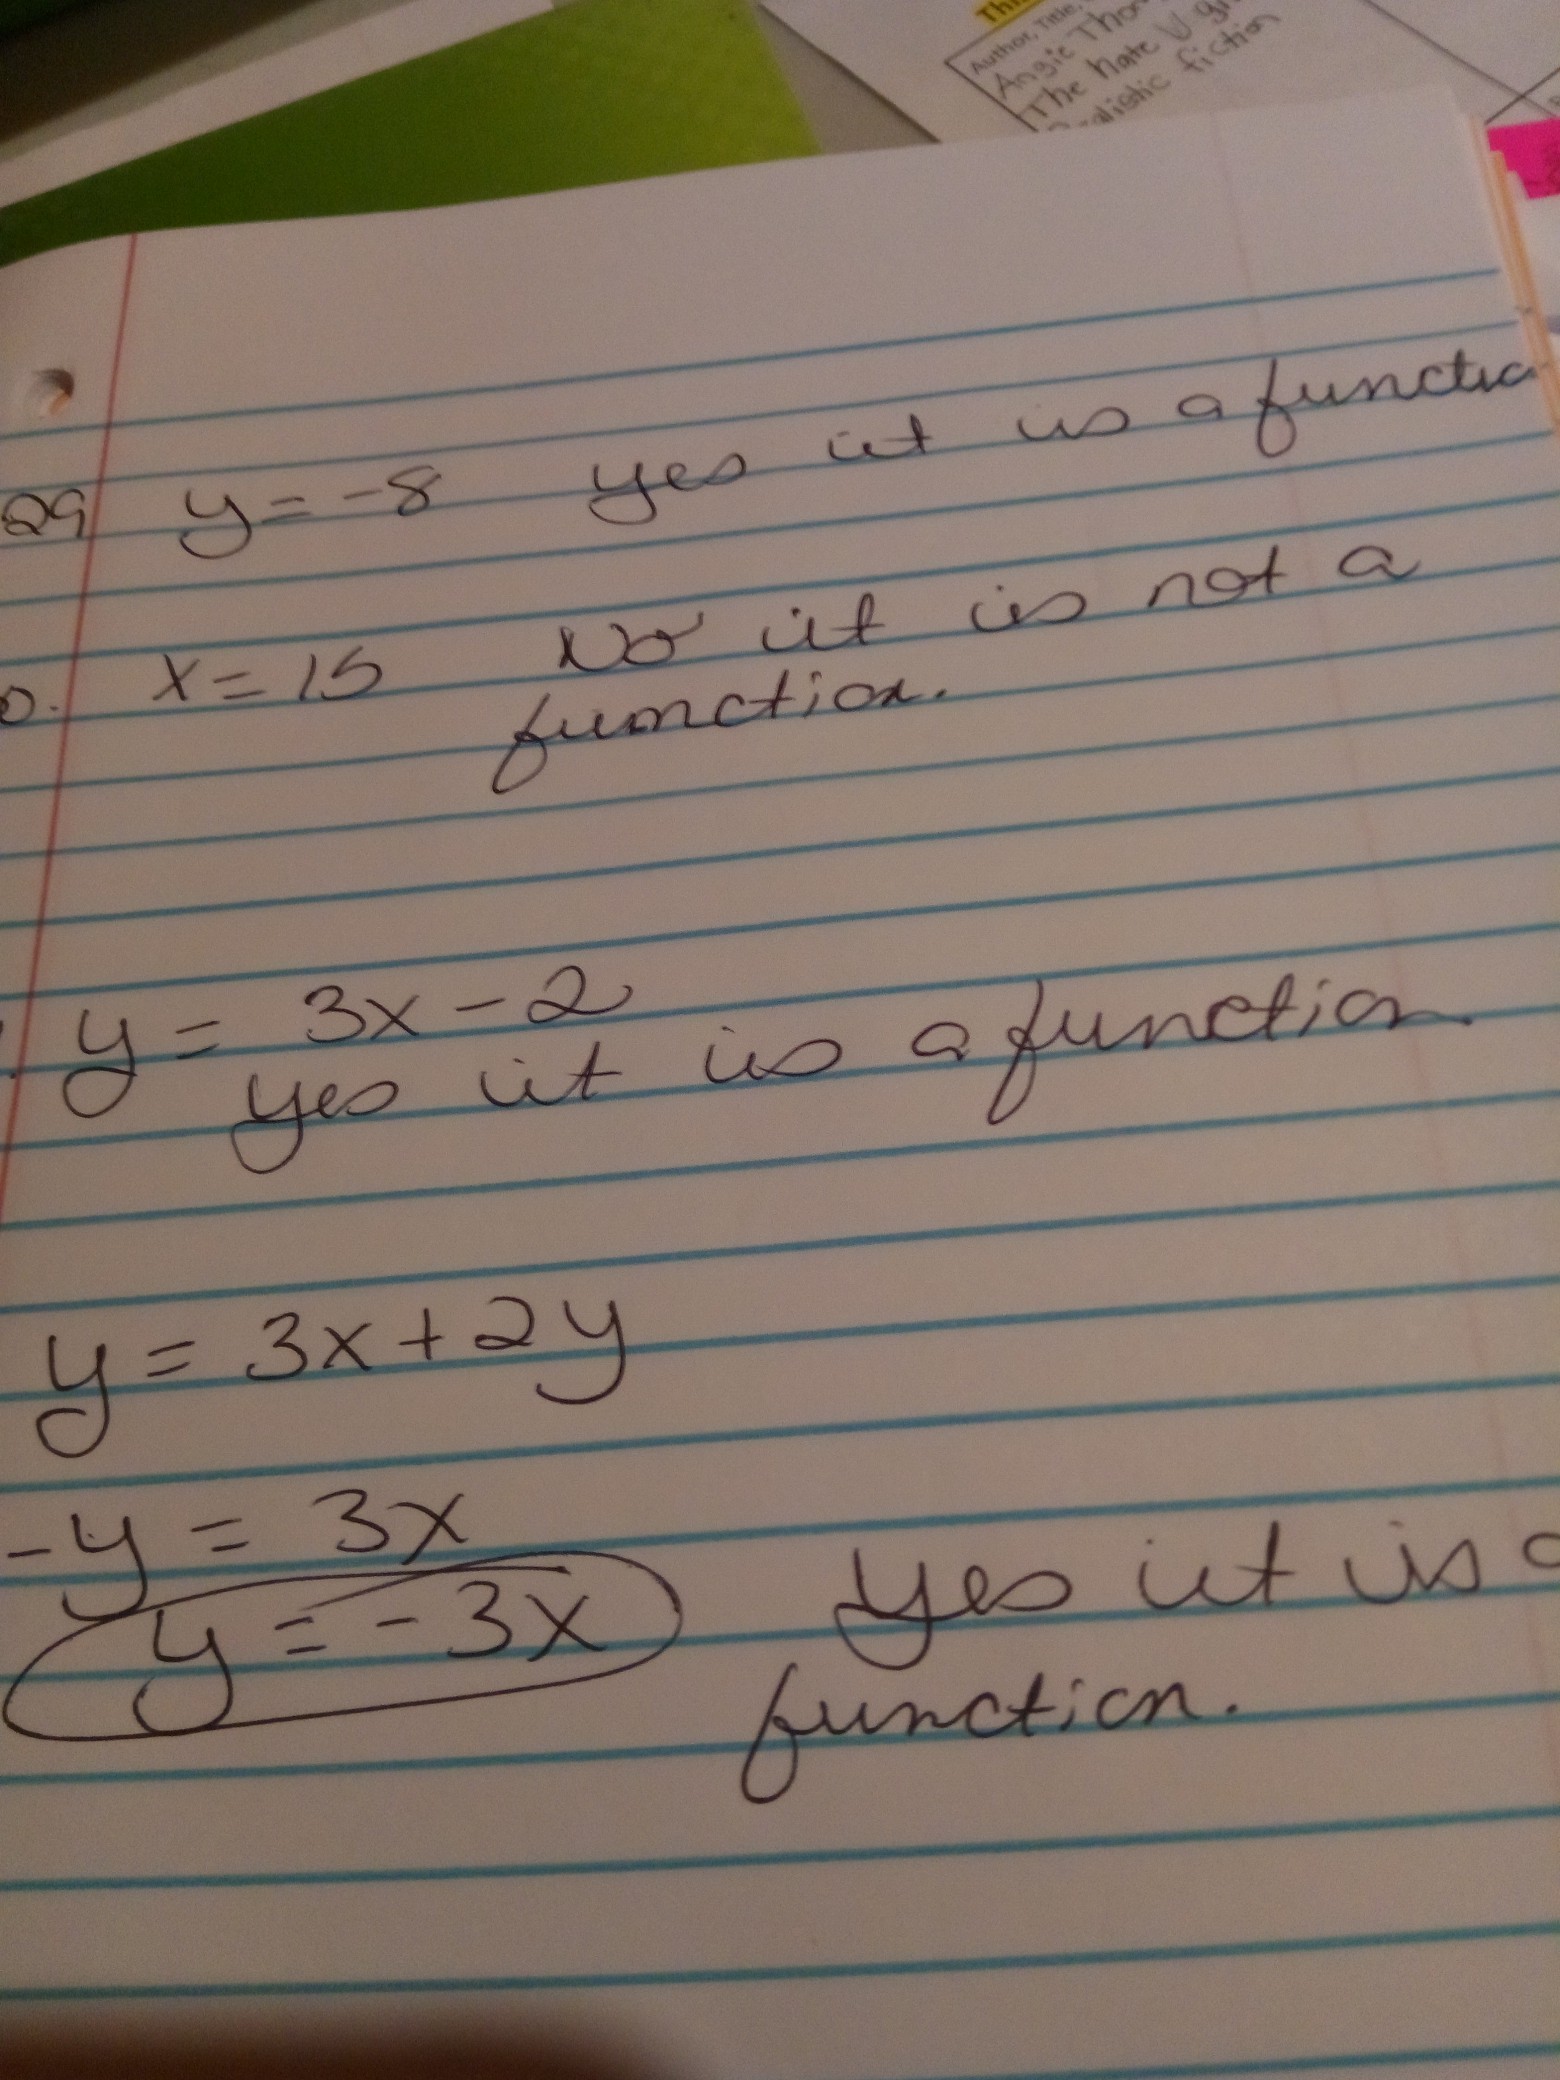 Author, Title,
Angie Tho
The hate U gi
fiction
29 y = -8 yes it is a functio
0. x = 15 No it is not a
function.
. y = 3x - 2
yes it is a function
y = 3x + 2y
-y = 3x
y = -3x yes it is a
function.